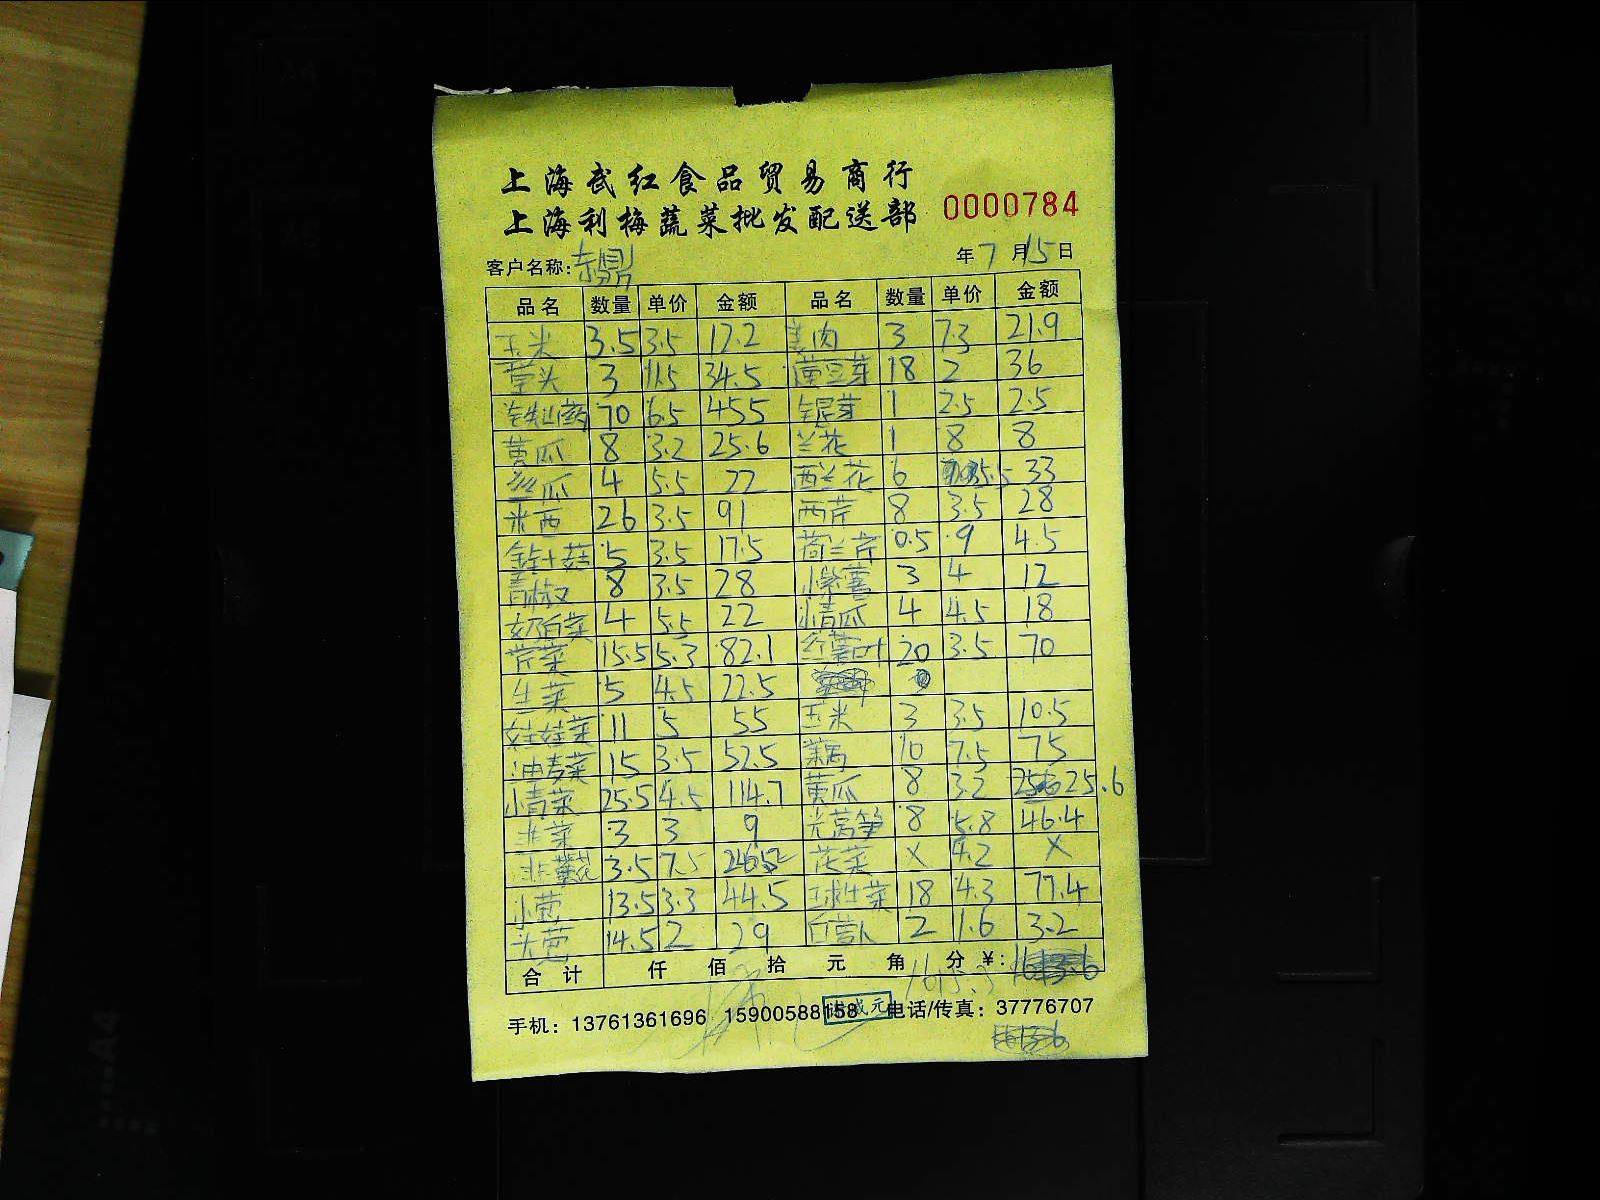 上海武红食品贸易商行
上海利梅蔬菜批发配送部 0000784
客户名称: 东鼎 年 7 月 15 日
品名 数量 单价 金额 品名 数量 单价 金额
玉米 3.5 3.5 12.2 姜肉 3 7.3 21.9
草头 3 11.5 34.5 黄豆芽 18 2 36
铁山药 70 6.5 455 银芽 1 2.5 2.5
黄瓜 8 3.2 25.6 兰花 1 8 8
丝瓜 4 5.5 22 西兰花 6 5.5 33
米西 26 3.5 91 西芹 8 3.5 28
金针菇 5 3.5 17.5 荷兰芹 0.5 9 4.5
青椒 8 3.5 28 小紫薯 3 4 12
奶白菜 4 5.5 22 小青瓜 4 4.5 18
芹菜 15.5 5.3 82.1 红薯叶 20 3.5 70
生菜 5 4.5 22.5
娃娃菜 11 5 55 玉米 3 3.5 10.5
油麦菜 15 3.5 52.5 藕 10 7.5 75
小青菜 25.5 4.5 114.7 黄瓜 8 3.2 25.6
韭菜 3 3 9 光莴笋 8 5.8 46.4
韭菜花 3.5 7.5 花菜 X 4.2 X
小葱 13.5 3.3 44.5 球生菜 18 4.3 77.4
大葱 14.5 2 29 白萝卜 2 1.6 3.2
合计 仟 佰 拾 元 角 分 ¥: 1615.3
手机: 13761361696 15900588158 电话/传真: 37776707